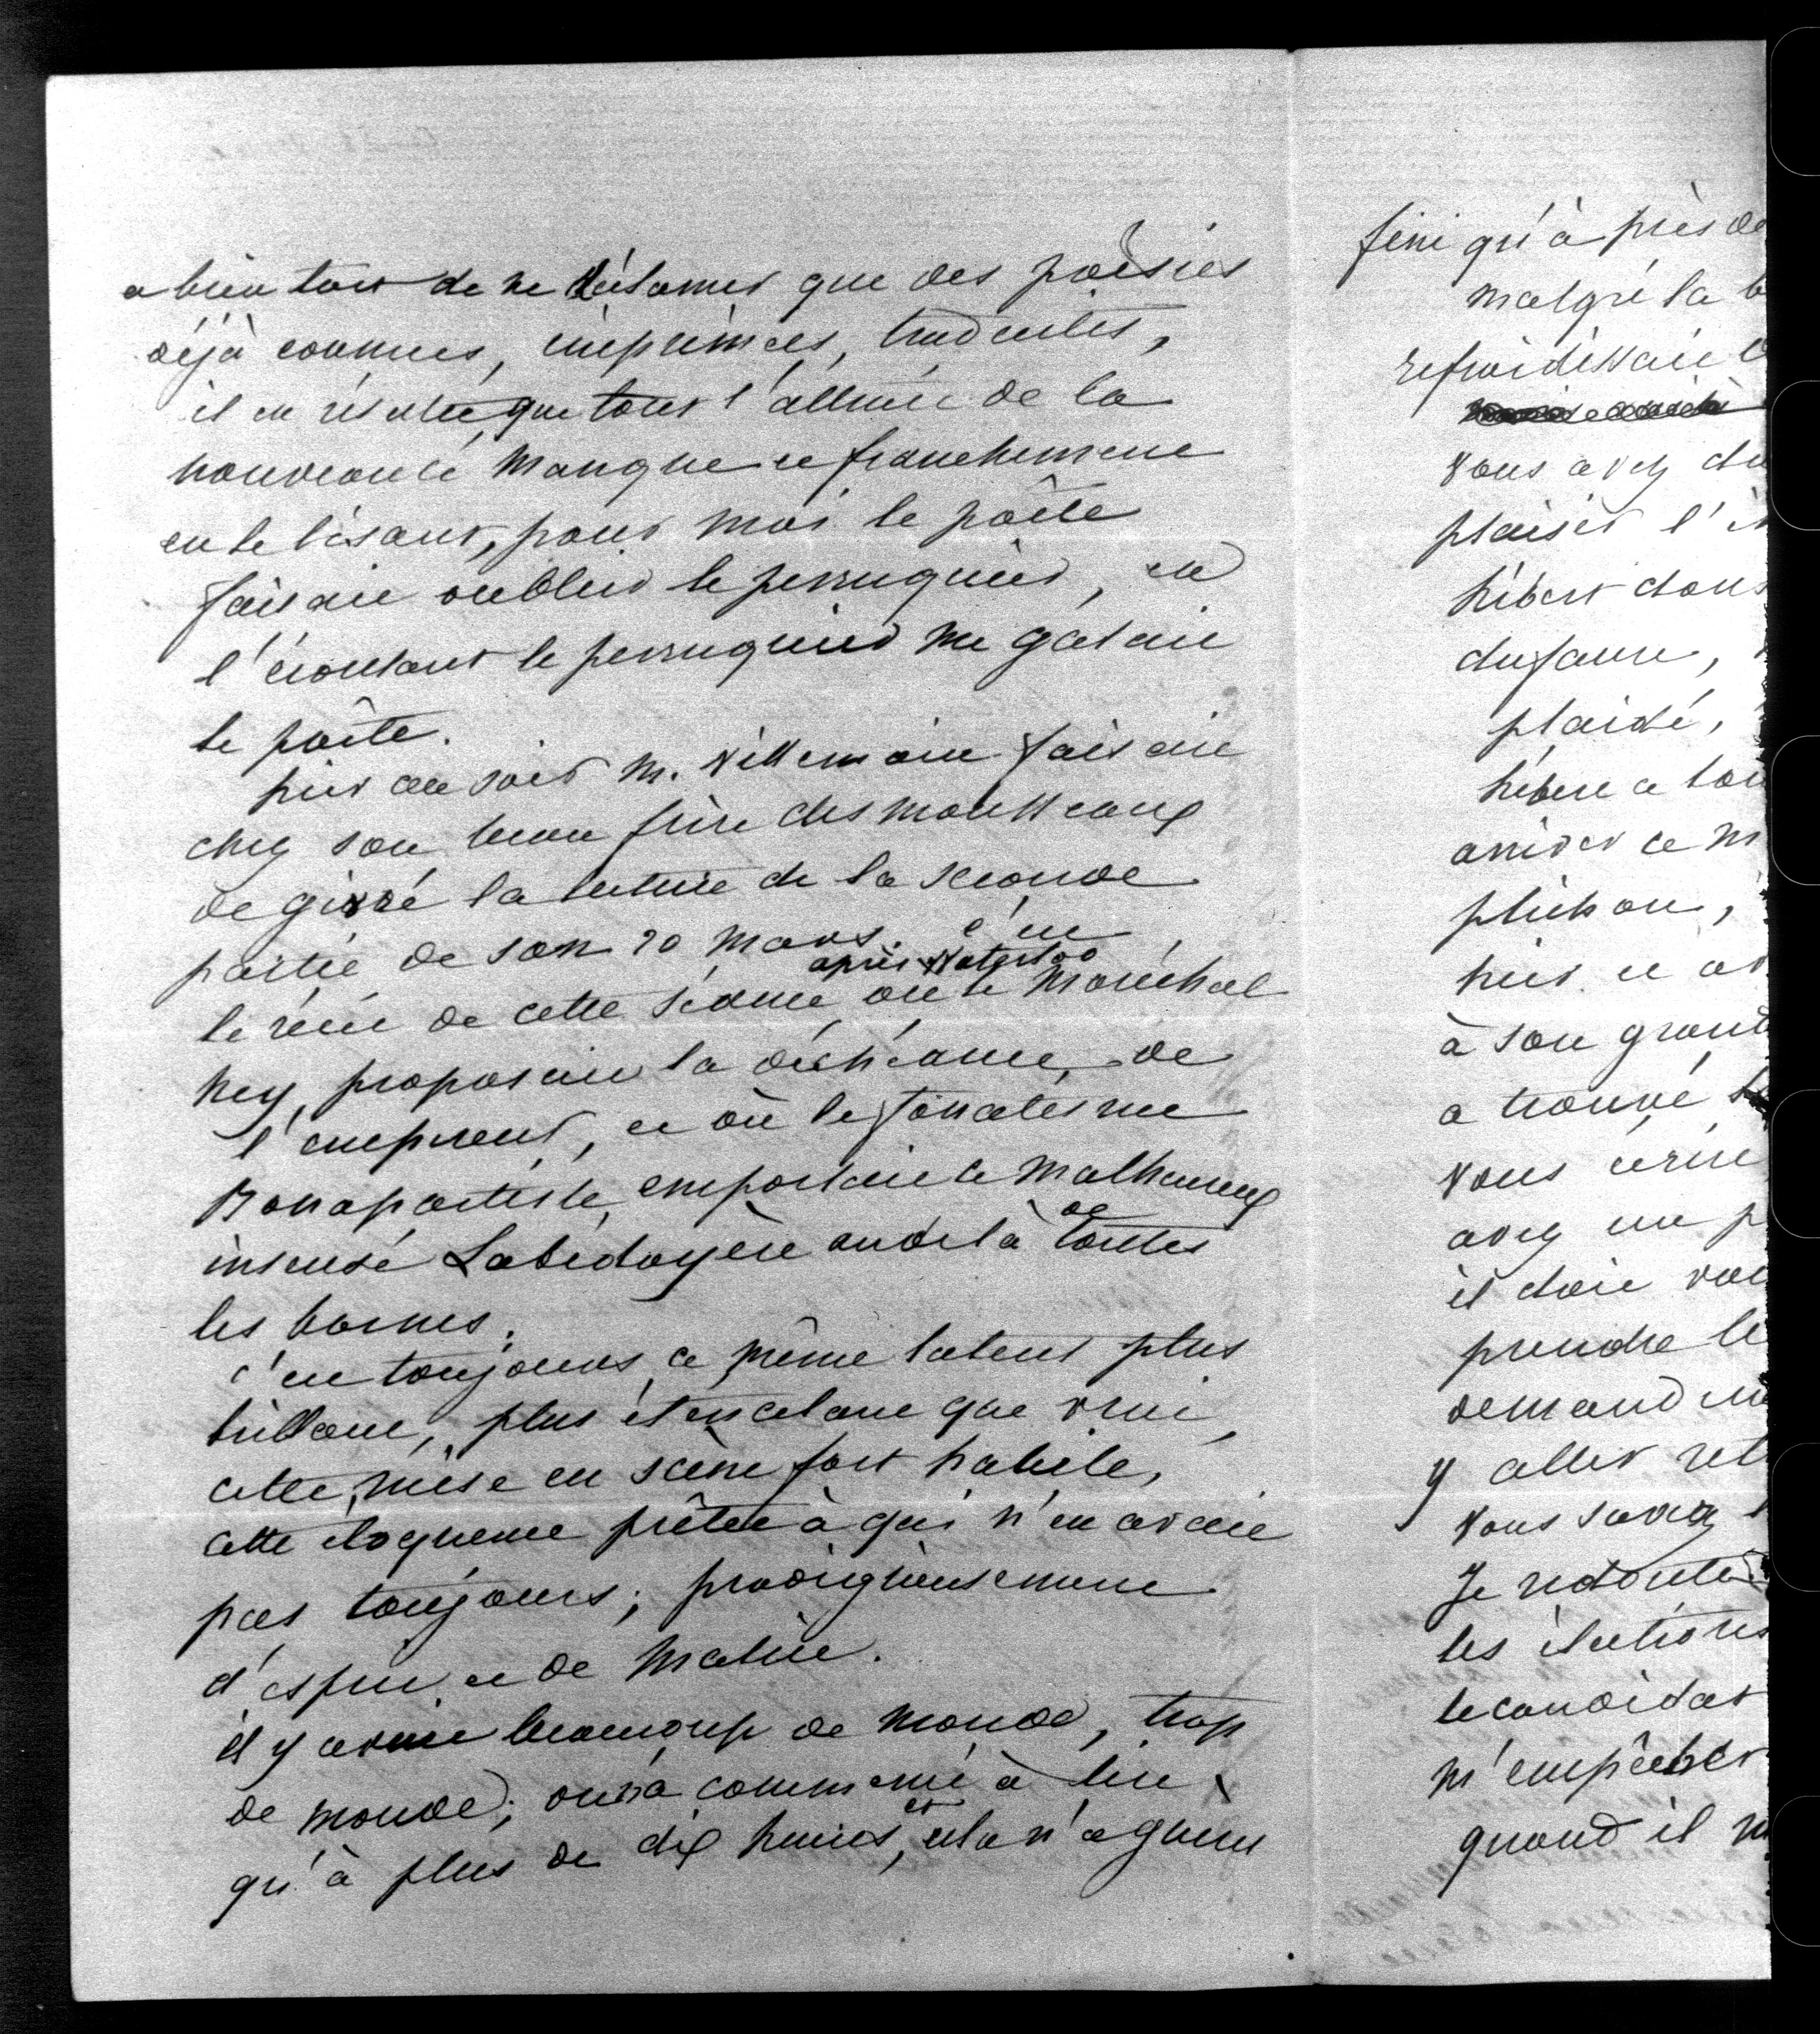 a bien tort de ne déclamer que des poësies
déjà connues, imprimées, traduites,
il en résulte que tout l'attrait de la
nouveauté manque et franchement
en le lisant, pour moi le poëte
faisait oublier le perruquier, en
l'écoutant le perruquier me gatait
le poëte.
hier au soir M. Villemain faisait
chez son beau frère desmousseaux
de givré la lecture de la seconde
partie de son 20 mars. c'est
le récit de cette séance après Waterloo où le maréchal
ney, proposait la déchéance de
l'empereur, et où le fanatisme
Bonapartiste, emportait ce malheureux
insensé Labedoyère audelà de toutes
les bornes.
c'est toujours ce même talent plus
brillant, plus étincelant que vrai,
cette mise en scène fort habile,
cette éloquence prêtée à qui n'en avait
pas toujours; prodigieusement
d'esprit et de malice.
il y avait beaucoup de monde, trop
de monde; on n'a commencé à lire
qu'à plus de dix heures, et cela n'a guere
fini qu'à près de
malgré la
refroidissait
vous avez
plaisir
hébert dans
dufaure,
plaidé,
hébert a
arriver ce
plichon,
hier et
à son grand
a trouvé
vous écrire
avez un
il doit
prendre le
demand
y aller
vous savez
Je redoute
les élections
le candidat
m'empêcher
quand il